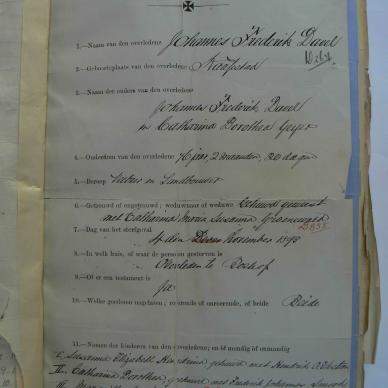 1.—Naam van den overledene Johannes Frederik Davel
2.—Geboorteplaats van den overledene Kaapstad
3.—Naam der ouders van den overledene
Johannes Frederik Davel
en Catharina Dorothea Geyer
4.—Ouderdom van den overledene 76 jaar, 2 maanden, 20 dagen
5.—Beroep en Landbouwer
6.—Getrouwd of ongetrouwd; weduwnaar of weduwe Getrouwd geweest
met Catharina Maria Susanna Groenewald
7.—Dag van het sterfgeval
den November 1898
8.—In welk huis, of waar de persoon gestorven is
Overleden te Boshof
9.—Of er een testament is
Ja
10.—Welke goederen nagelaten; roerende of onroerende, of beide Beide
11.—Namen der kinderen van den overledene; en of mondig of onmondig
I. Susanna Elizabeth gehuwd met Hendrik
II. Catharina Dorothea, gehuwd met Frederik Johannes
III.